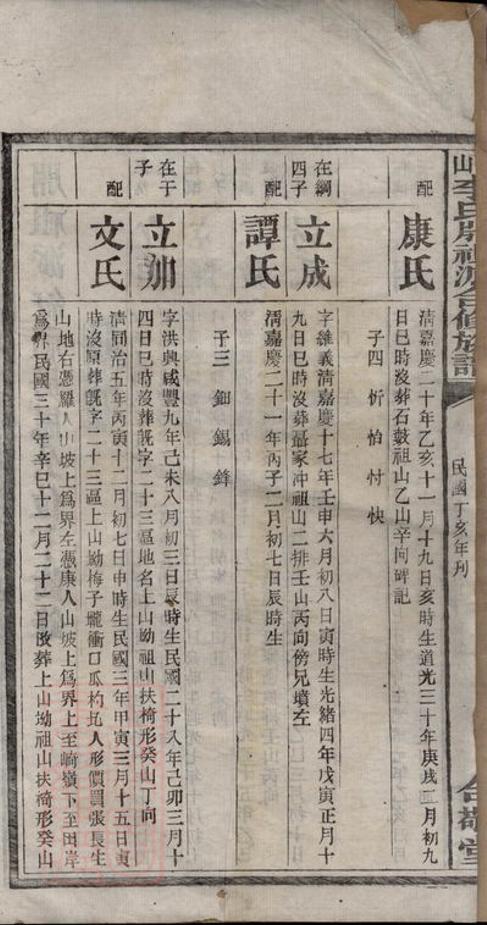 山李氏房禄派合修族譜
民國丁亥年刊
合敬堂
配
康氏
清嘉慶二十年乙亥十一月十九日亥時生道光三十年庚戌二月初九
日巳時沒葬石鼓祖山乙山辛向碑記
子四 忻 怕 忖 快
在綱
四子
立成
字維義清嘉慶十七年壬申六月初八日寅時生光緒四年戊寅正月十
九日巳時沒葬聶家冲祖山二排壬山丙向傍兄墳左
配
譚氏
清嘉慶二十一年丙子二月初七日辰時生
子三 鈿 錫 鋒
在于
子
立加
字洪興咸豐九年己未八月初三日辰時生民國二十八年己卯三月十
四日巳時沒葬毷字二十三區地名上山坳祖山扶椅形癸山丁向
配
文氏
清同治五年丙寅十二月初七日申時生民國三年甲寅三月十五日寅
時沒原葬毷字二十三區上山坳梅子壠衝口瓜杓坵人形價買張長生
山地右憑羅人山坡上爲界左憑康人山坡上爲界上至崎嶺下至田岸
爲界民國三十年辛巳十二月二十二日改葬上山坳祖山扶椅形癸山